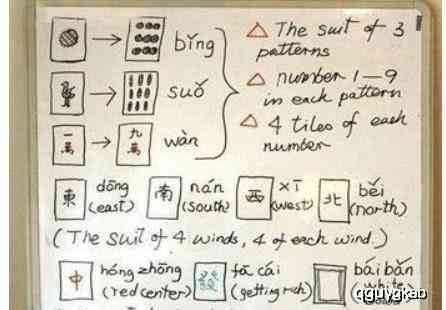 bǐng
△ The suit of 3 patterns
suǒ
△ number 1—9 in each pattern
一萬 → 九萬 wàn
△ 4 tiles of each number
東 dōng (east) 南 nán (south) 西 xī (west) 北 běi (north)
(The suit of 4 winds, 4 of each wind.)
中 hóng zhōng (red center) 發 fā cái (getting rich) bái bǎn white
qguygkab